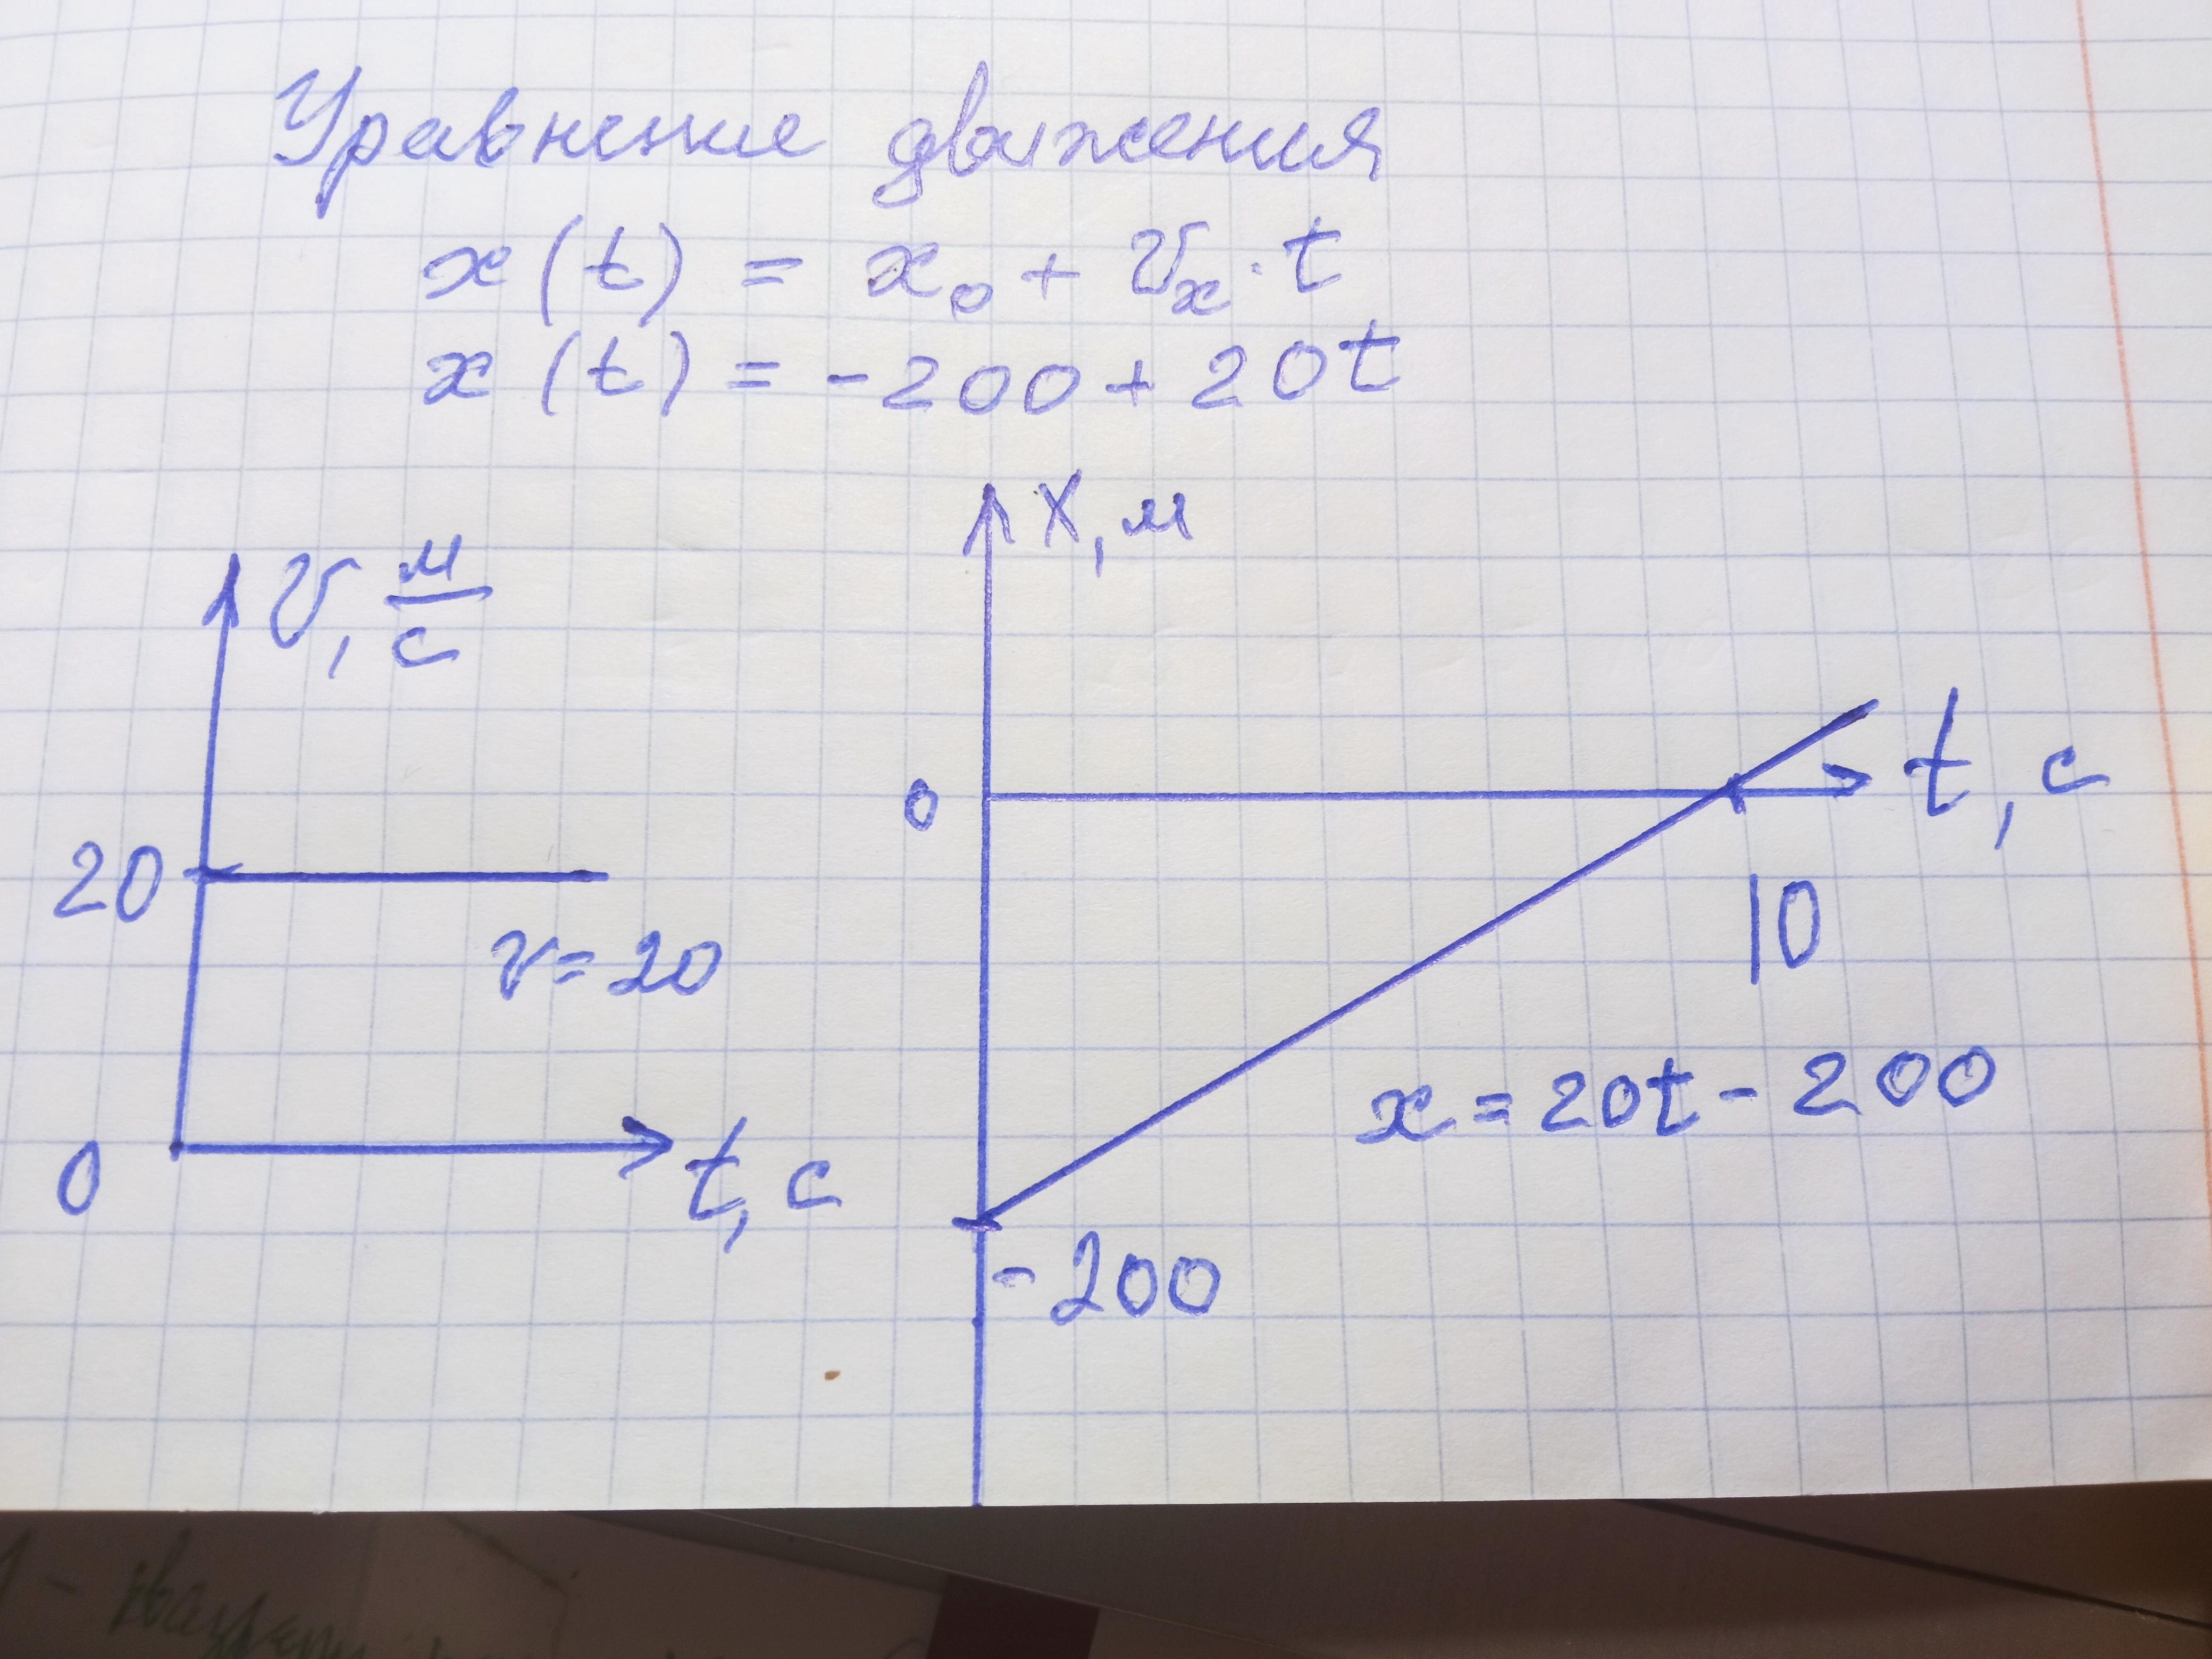 Уравнение движения
x(t) = x₀ + vₓ · t
x(t) = -200 + 20t
v, м/с
20
v = 20
0
t, с
x, м
0
t, с
10
x = 20t - 200
-200